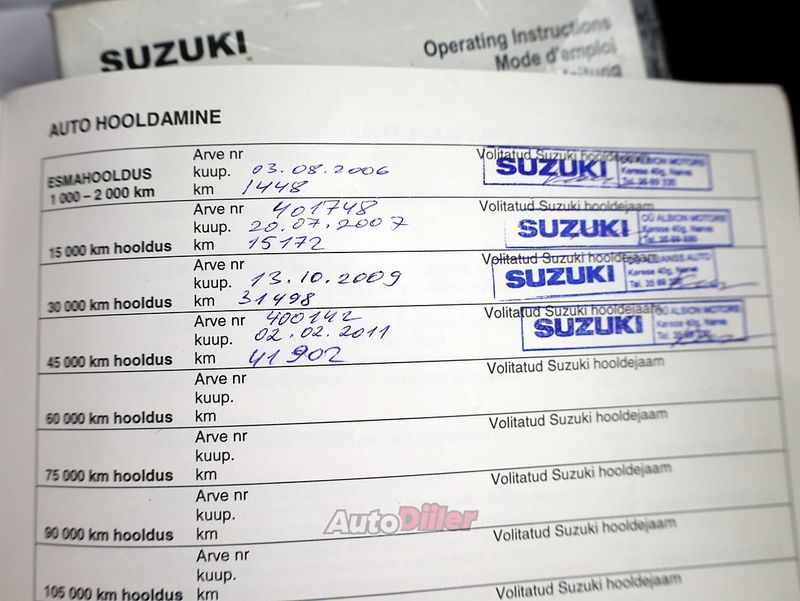 SUZUKI
Operating Instructions
Mode d'emploi
AUTO HOOLDAMINE
ESMAHOOLDUS
1 000 – 2 000 km
Arve nr
kuup. 03.08.2006
km 1448
Volitatud Suzuki hooldejaam
SUZUKI
OÜ ALBION MOTORS
15 000 km hooldus
Arve nr 401748
kuup. 20.07.2007
km 15172
Volitatud Suzuki hooldejaam
SUZUKI
OÜ ALBION MOTORS
30 000 km hooldus
Arve nr
kuup. 13.10.2009
km 31498
Volitatud Suzuki
SUZUKI
45 000 km hooldus
Arve nr 400142
kuup. 02.02.2011
km 41902
Volitatud Suzuki hooldejaam
SUZUKI
OÜ ALBION MOTORS
60 000 km hooldus
Arve nr
kuup.
km
Volitatud Suzuki hooldejaam
75 000 km hooldus
Arve nr
kuup.
km
Volitatud Suzuki hooldejaam
90 000 km hooldus
Arve nr
kuup.
km
Volitatud Suzuki hooldejaam
105 000 km hooldus
Arve nr
kuup.
km
Volitatud Suzuki hooldejaam
Volitatud Suzuki hooldejaam
AutoDiiler